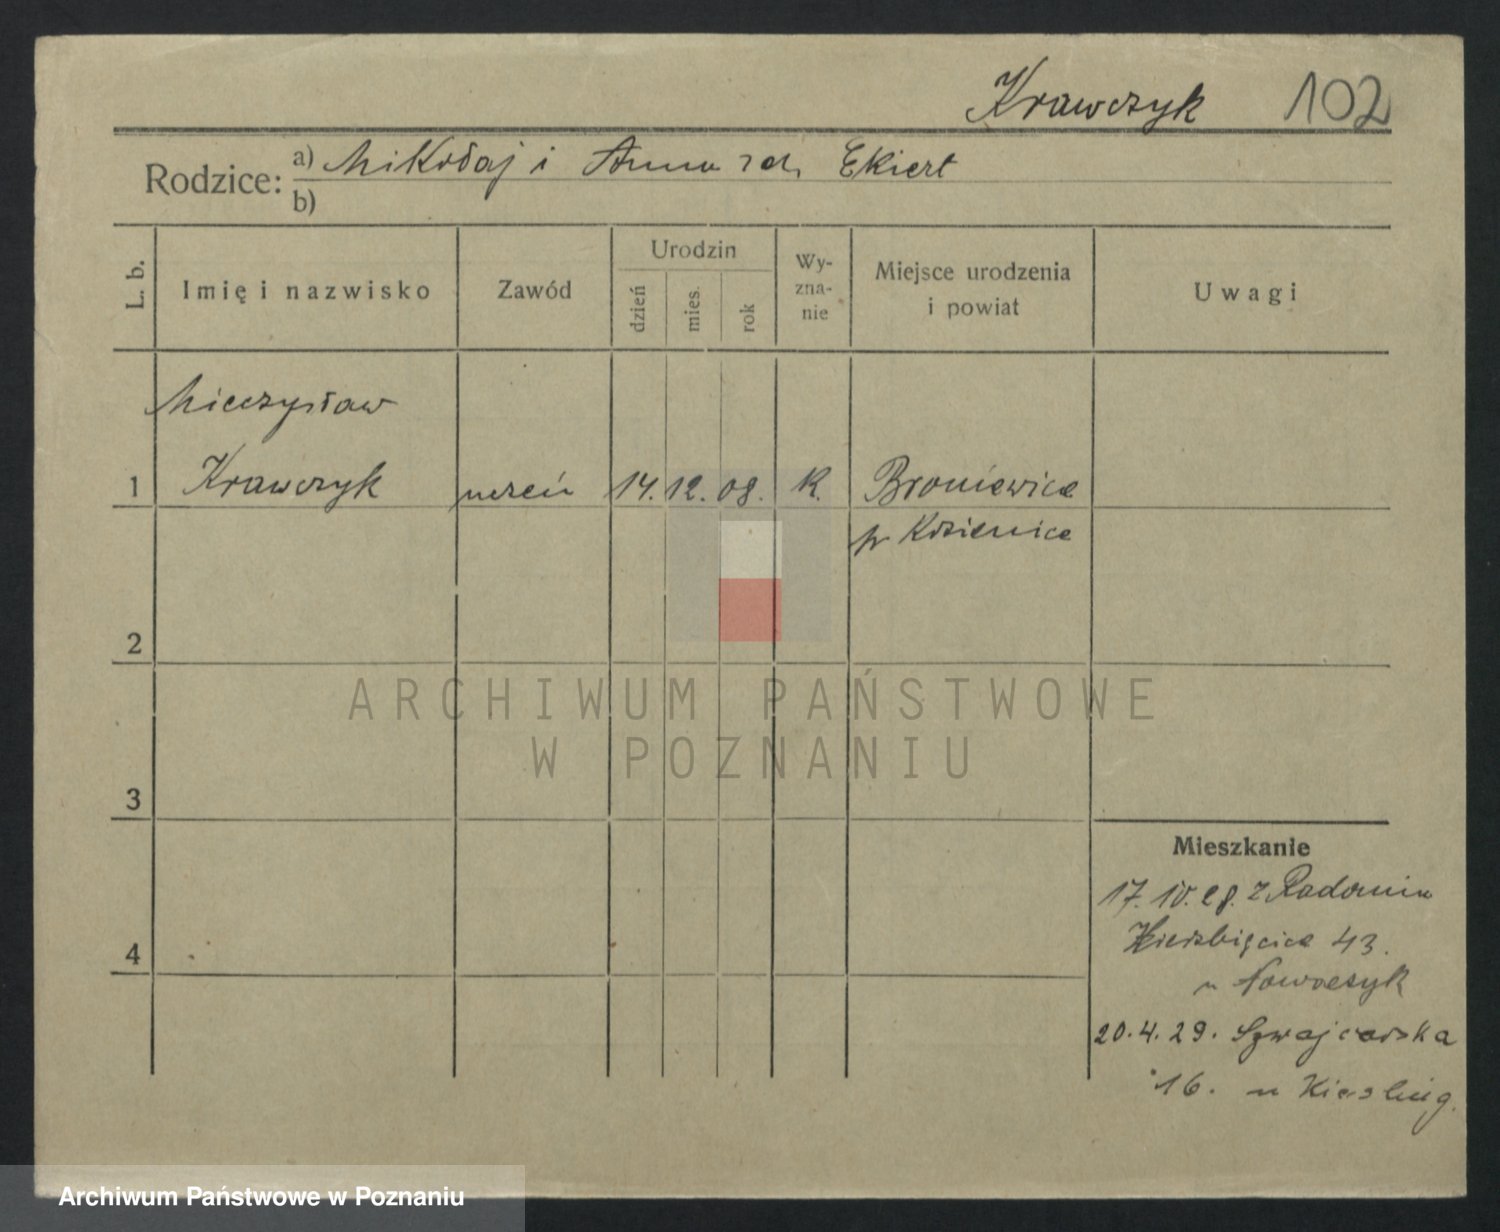 Krawczyk 102
Rodzice: a) Mikołaj i Anna zd. Ekiert
b)
L. b. Imię i nazwisko Zawód Urodzin dzień mies. rok Wy-zna-nie Miejsce urodzenia i powiat Uwagi
Mieczysław
1 Krawczyk uczeń 14. 12. 08. k. Broniewice
p Kozienice
2
ARCHIWUM PAŃSTWOWE
W POZNANIU
3
Mieszkanie
17. IV. 28. z Radomia
4 43.
u Nowaczyk
20. 4. 29. Szwajcarska
16. u Kiesling.
Archiwum Państwowe w Poznaniu